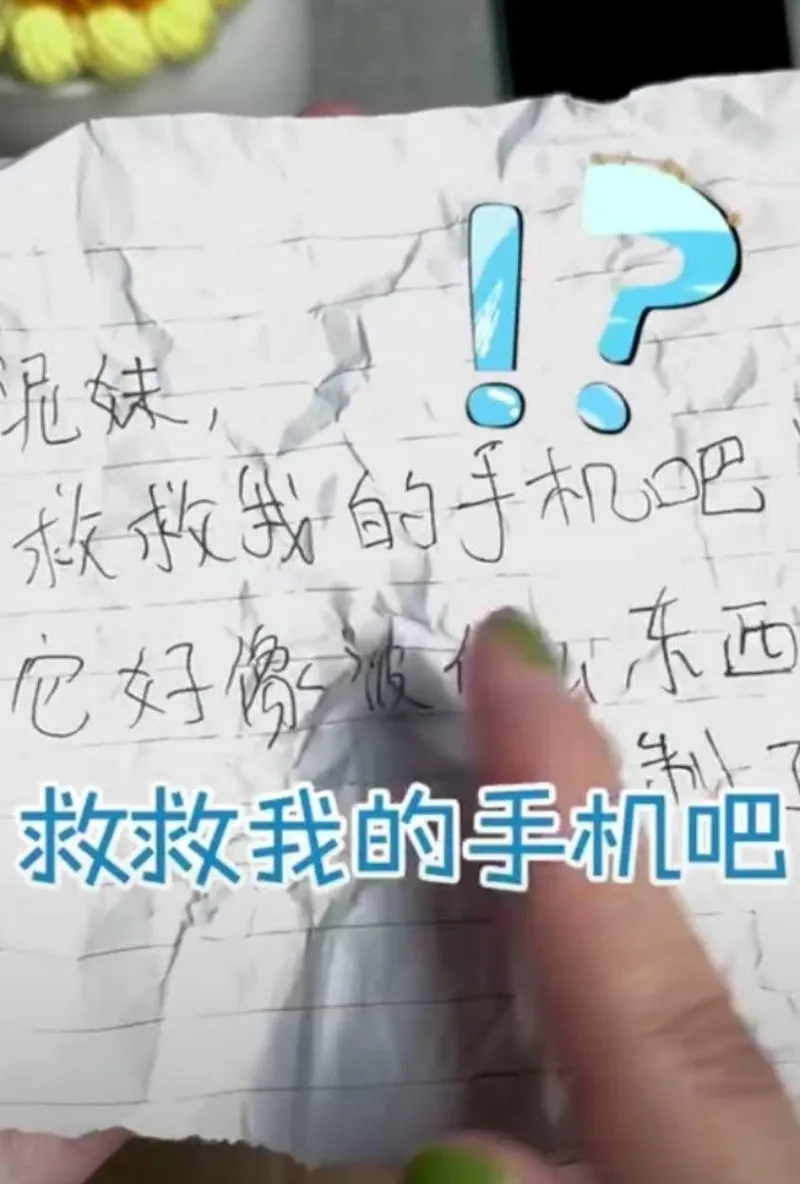 !?
泥妹,
救救我的手机吧
它好像被 东西
制了
救救我的手机吧